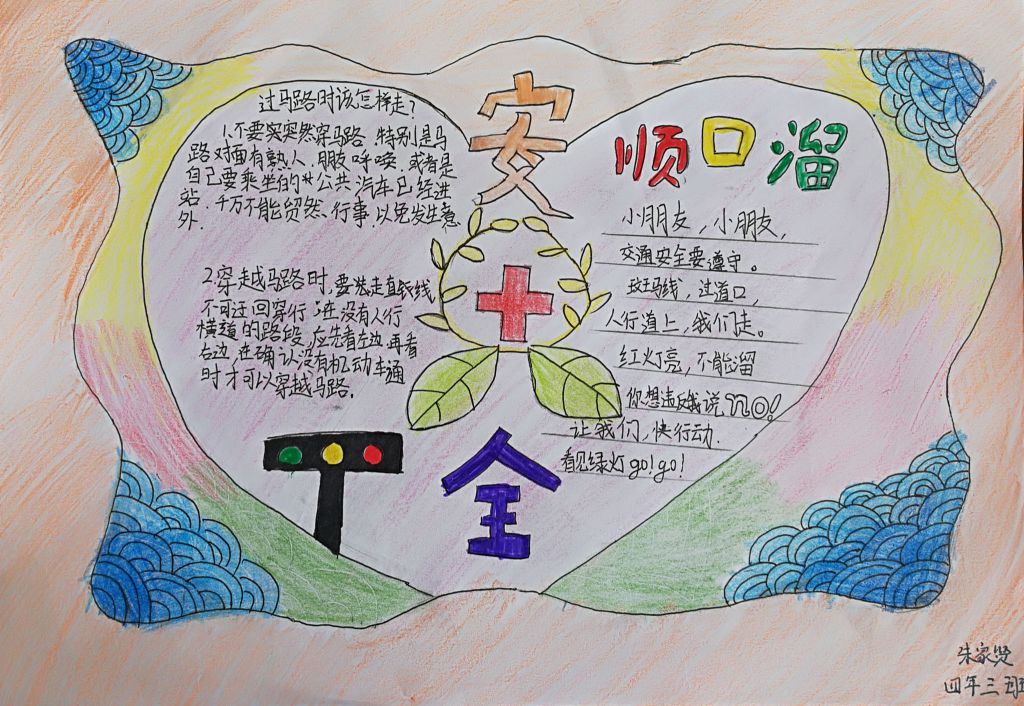 安
全
过马路时该怎样走?
1.不要突突然穿马路.特别是马
路对面有熟人.朋友呼唤.或者是
自己要乘坐的公共汽车已经进
站.千万不能贸然.行事.以免发生意
外.
2穿越马路时,要走直线,
不可迂回穿行;在没有人行
横道的路段,应先看左边.再看
右边.在确认没有机动车通
时才可以穿越马路.
顺口溜
小朋友,小朋友,
交通安全要遵守。
斑马线,过道口,
人行道上,我们走。
红灯亮,不能溜
你想违反我说no!
让我们,快行动.
看见绿灯go!go!
朱家贤
四年三班